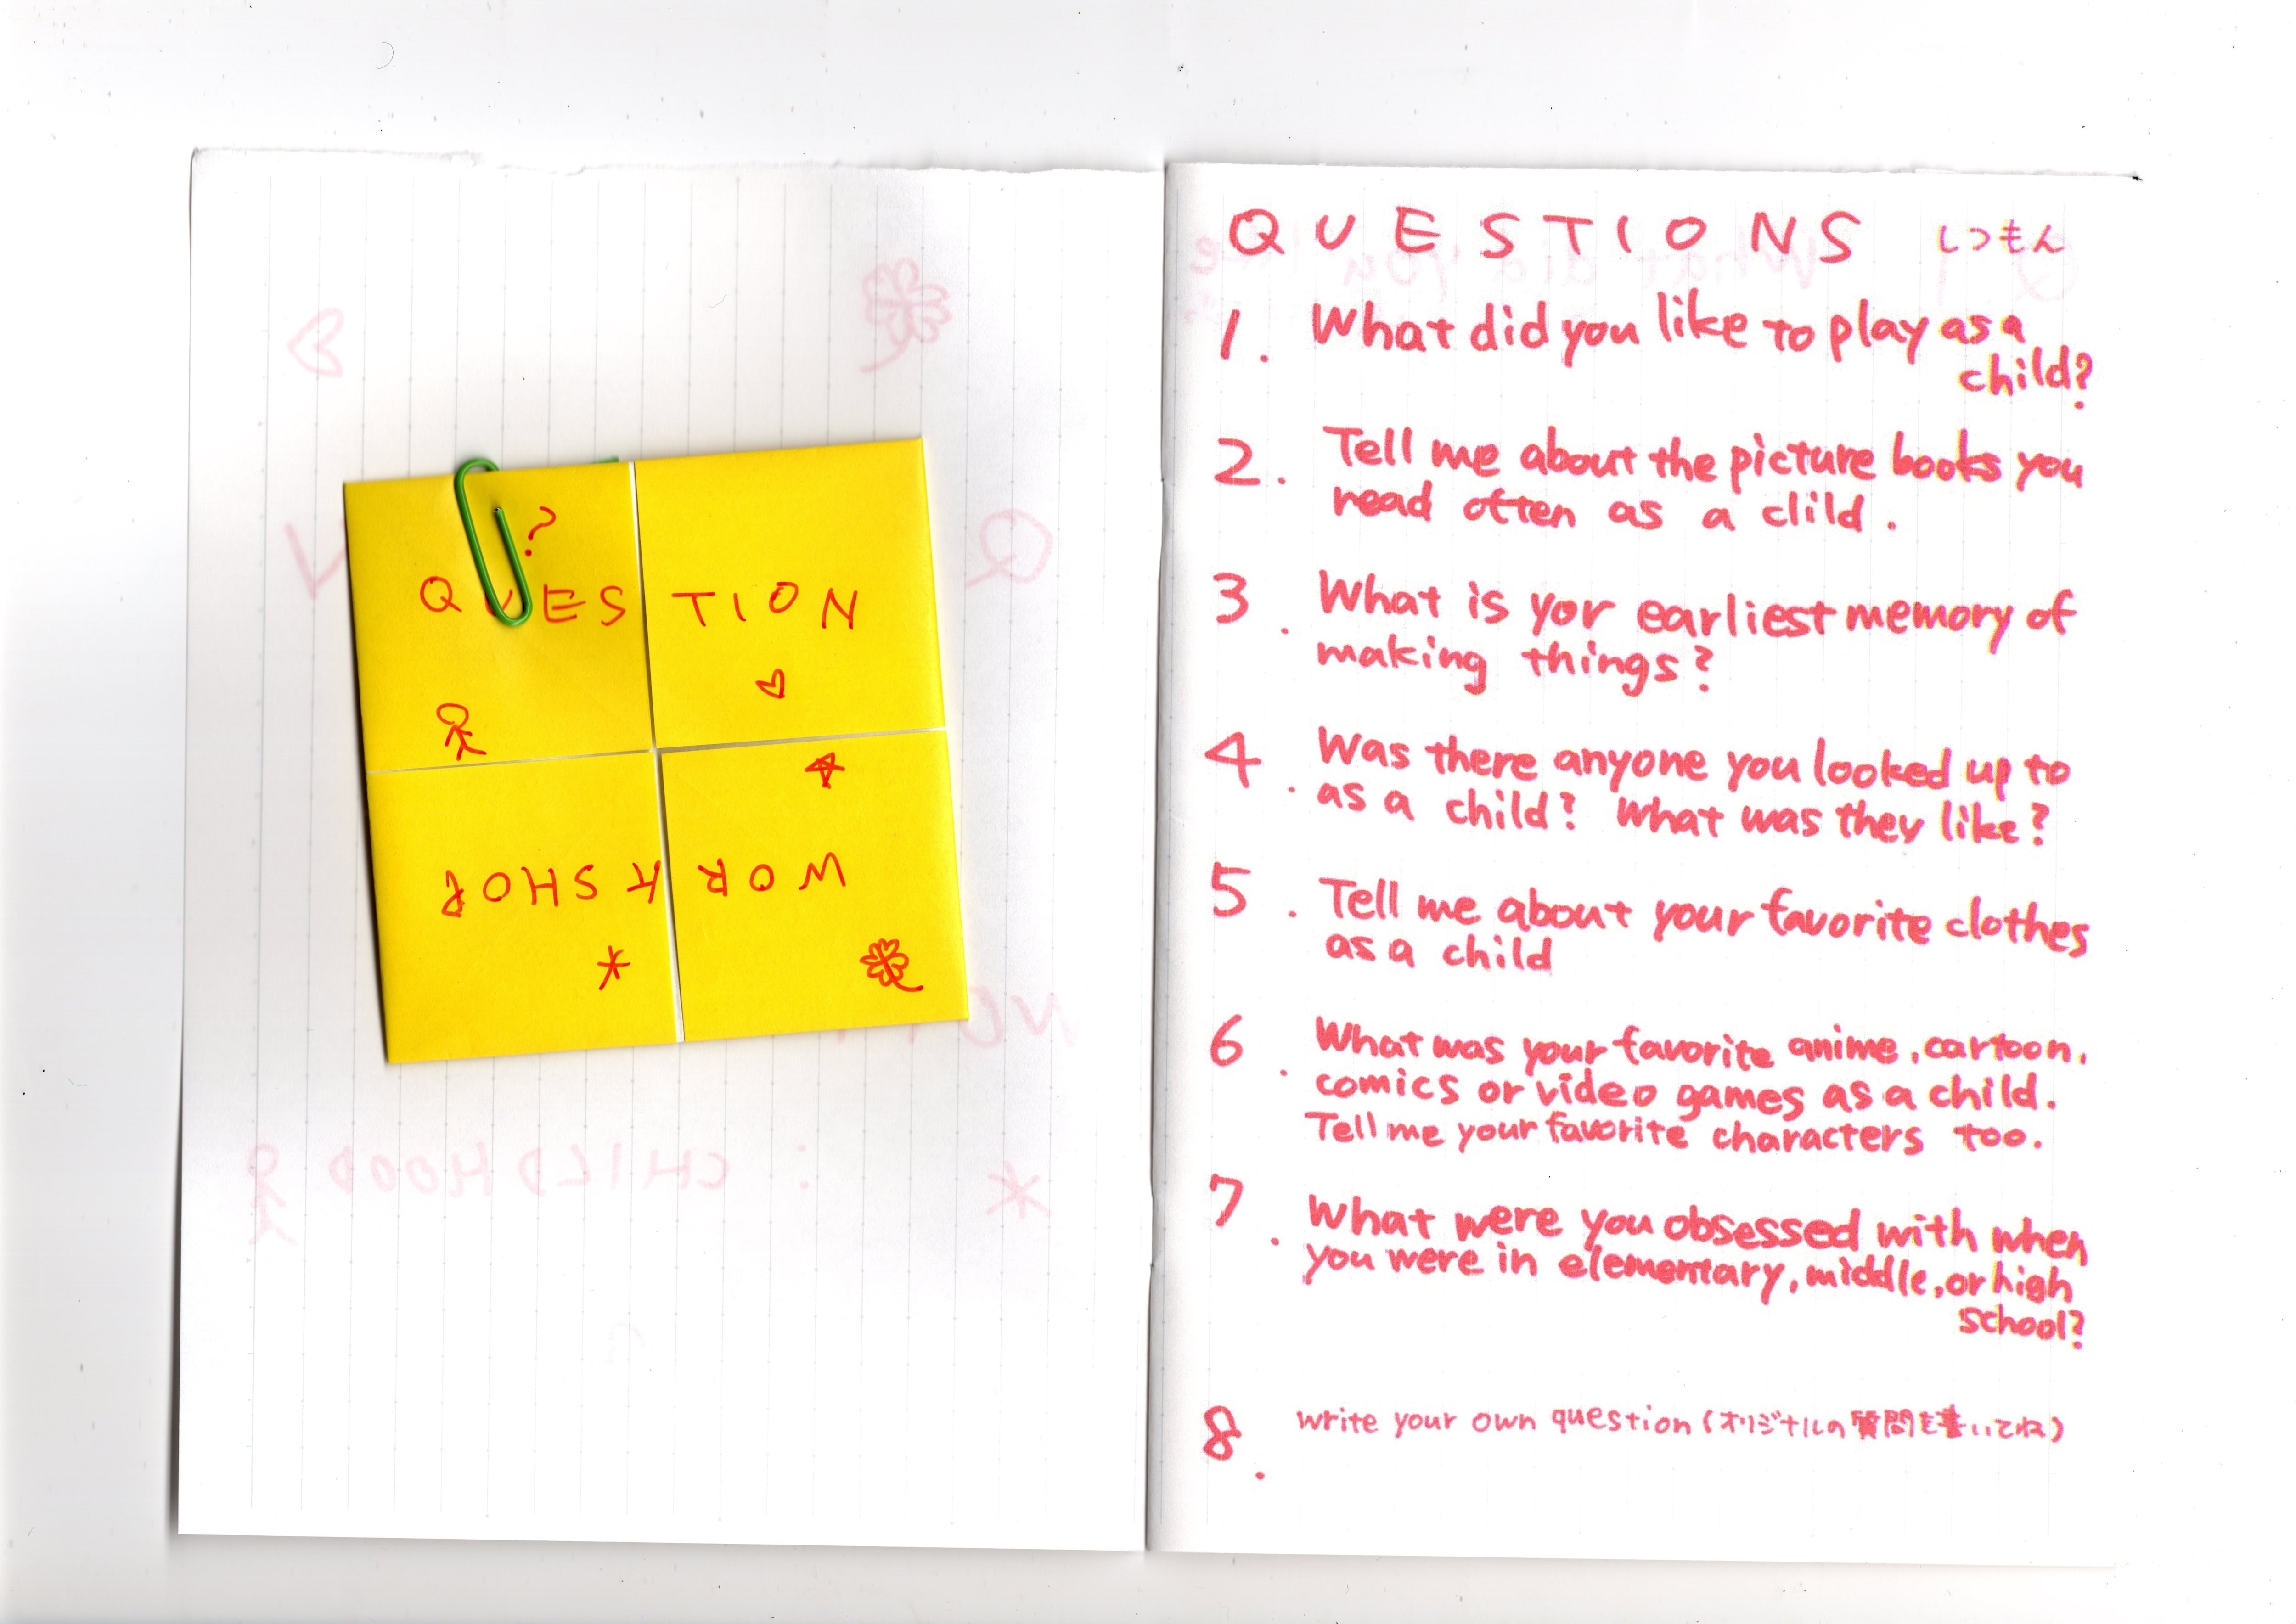 ?
QUESTION
WORKSHOP
QUESTIONS しつもん
1. What did you like to play as a
child?
2. Tell me about the picture books you
read often as a clild.
3. What is yor earliest memory of
making things?
4. Was there anyone you looked up to
as a child? What was they like?
5. Tell me about your favorite clothes
as a child
6. What was your favorite anime, cartoon,
comics or video games as a child.
Tell me your favorite characters too.
7. What were you obsessed with when
you were in elementary, middle, or high
school?
8. write your own question (オリジナルの質問を書いてね)
: CHILDHOOD